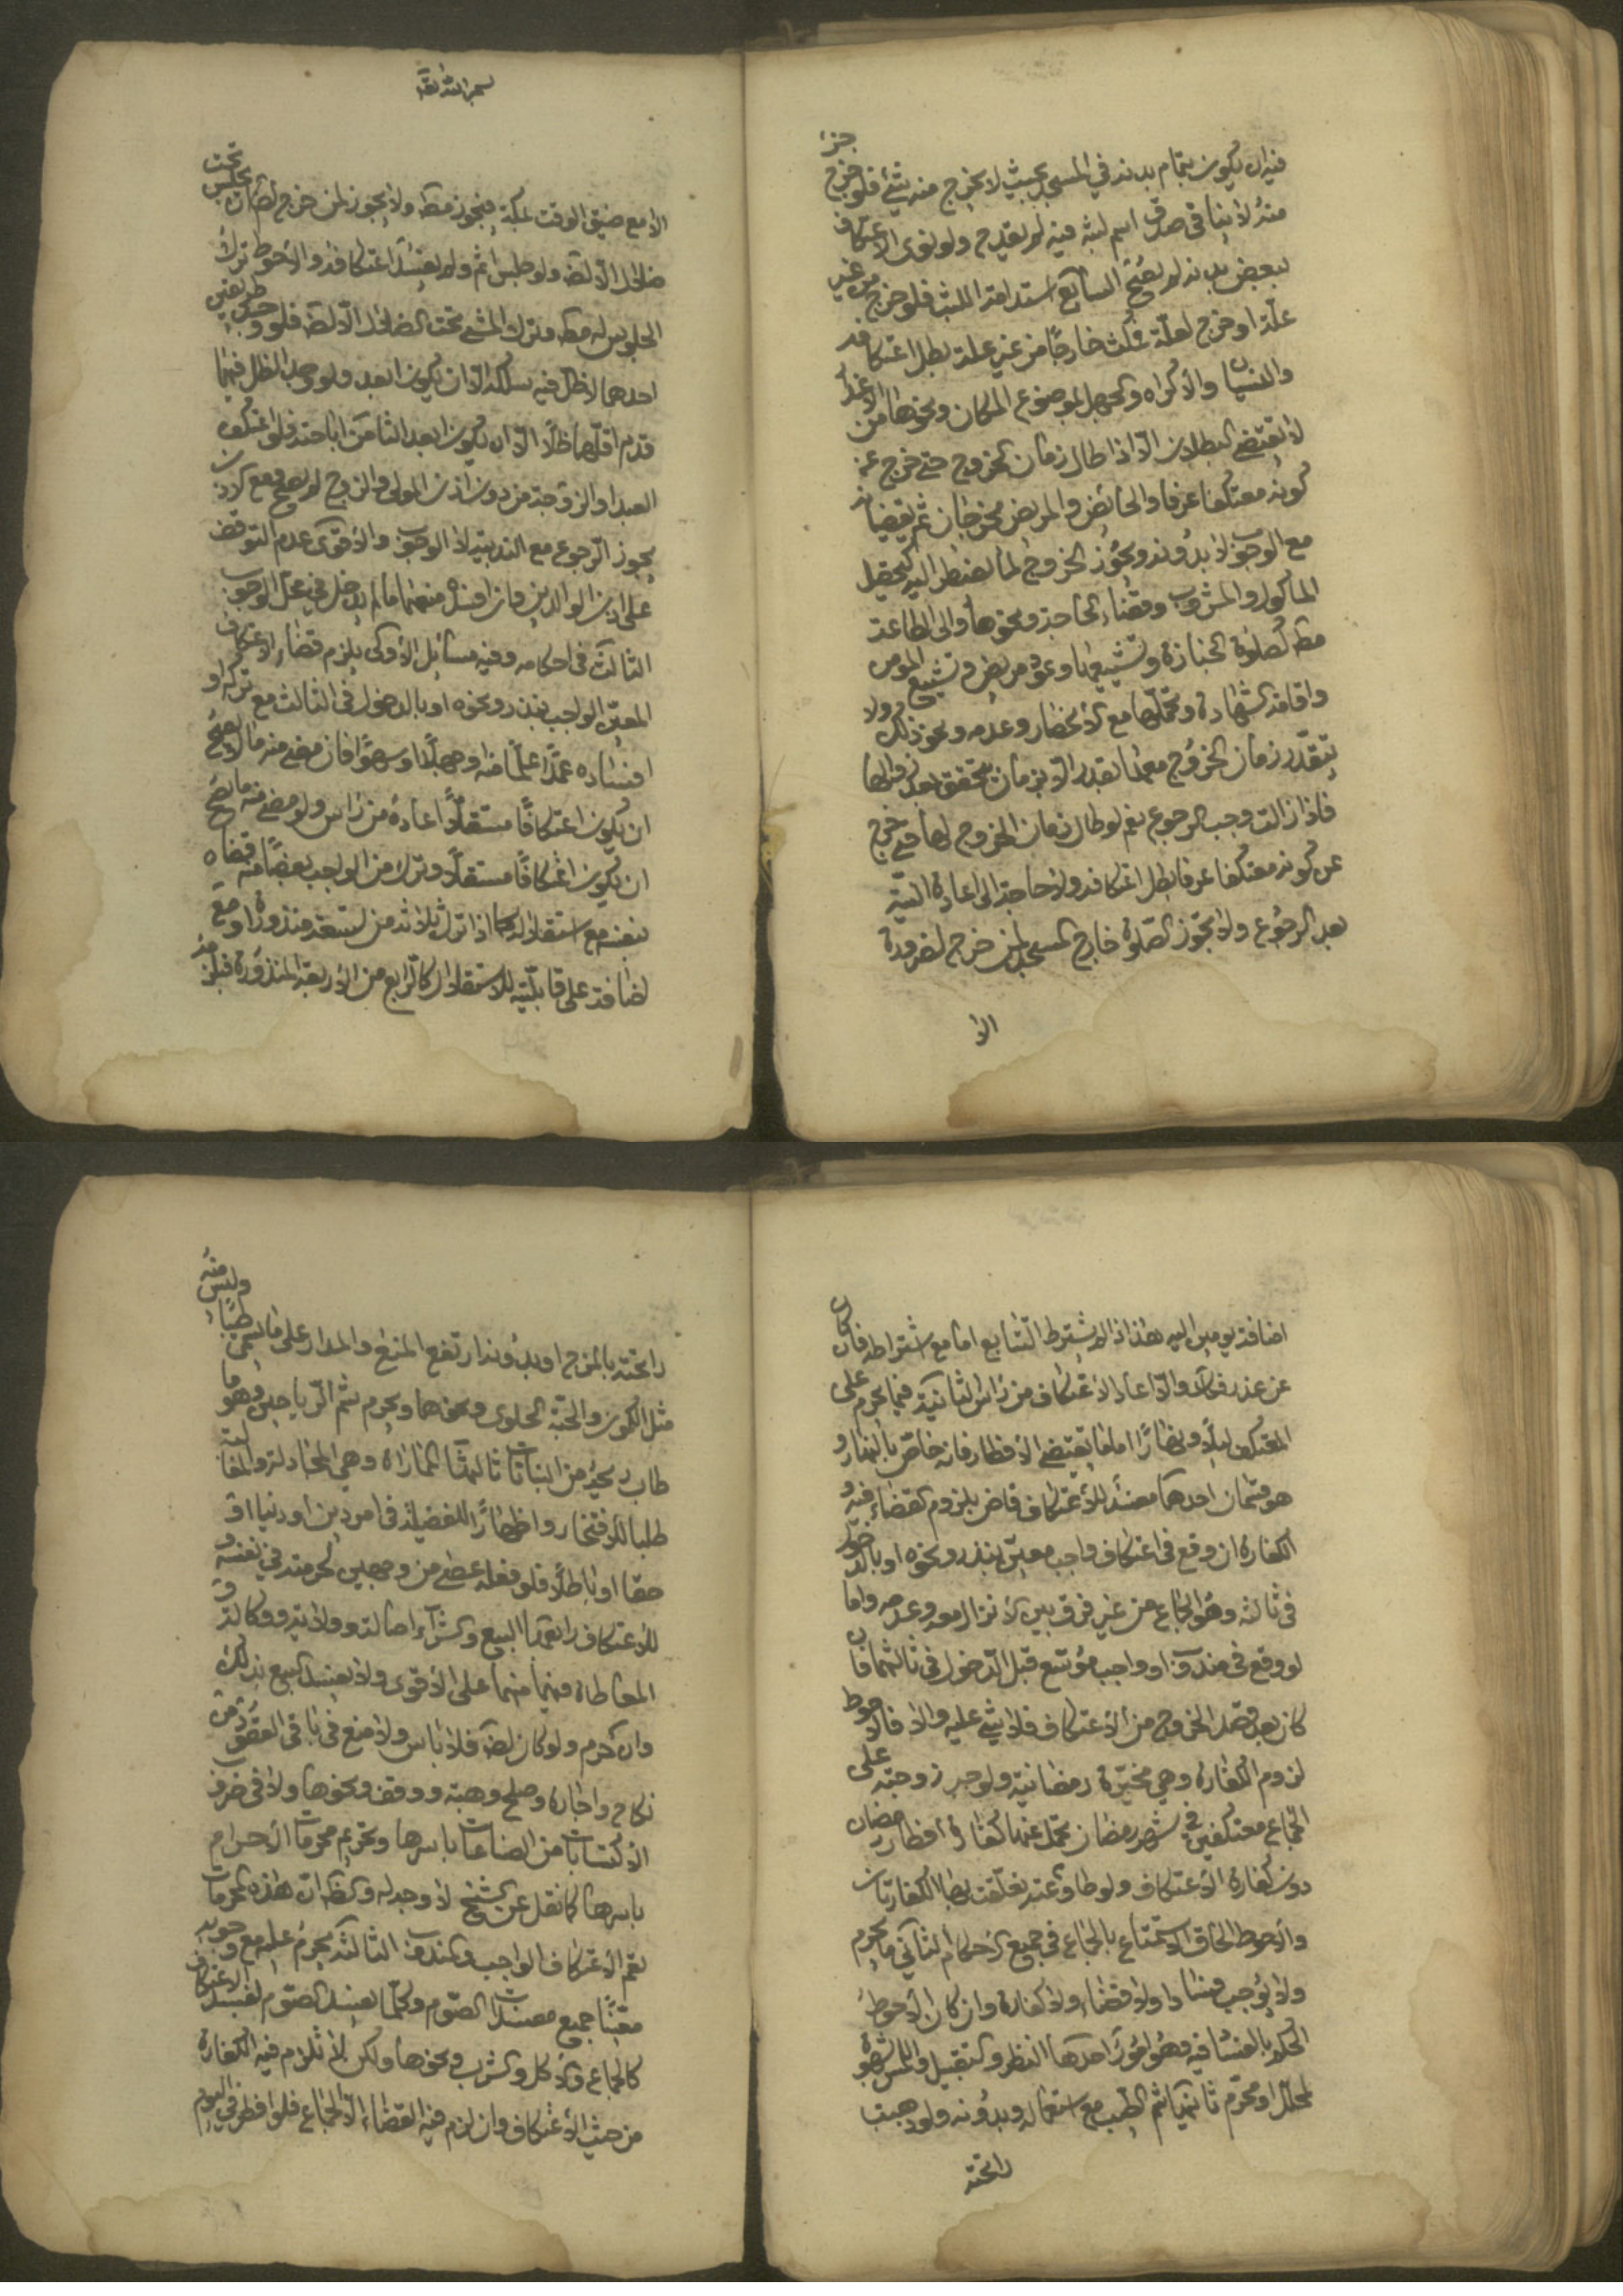 فيه ان يكون بتمام بدنه في المسجد بحيث لا يخرج منه شئ فلو خرج جزء
منه لا ينافي صدق اسم لبثه فيه لم يقدح ولو نوى الاعتكاف
ببعض بدنه لم يصح السابع استدامة اللبث فلو خرج من غير
علة او خرج لعلة فمكث خارجا من غير علة بطل اعتكافه
والنسيان والاكراه والجهل بموضوع المكان ونحوها من الاعذار
لا تقتضي البطلان الا اذا طال زمان الخروج حتى خرج عن
كونه معتكفا عرفا والحائض والمريض يخرجان ثم يقضيانه
مع الوجوب لا بدونه ويجوز الخروج لما يضطر اليه كتحصيل
الماكول والمشروب وقضاء الحاجة ونحوها والى الطاعة
مط كصلوة الجنازة وتشييعها وعود مريض وتشييع المؤمن
واقامة الشهادة وتحملها مع الانحصار وعدمه ونحو ذلك ولا
يتقدر زمان الخروج معها بقدر الا بزمان يتحقق بعد زوالها
فاذا زالت وجب الرجوع نعم لو طال زمان الخروج لها حتى خرج
عن كونه معتكفا عرفا بطل اعتكافه ولا حاجة الى اعادة النية
بعد الرجوع ولا تجوز الصلوة خارج المسجد لمن خرج لضرورة
الا
بسم الله تعا
الا مع ضيق الوقت بمكة فيجوز مط ولا يجوز لمن خرج لضرورة ان يجلس تحت
ظلال الا لضرورة ولو جلس اثم ولم يفسد اعتكافه والاحوط ترك
الجلوس له مط وترك المشي تحت الظلال الا لضرورة فلو وجد طريقين
احدهما لا ظل فيه سلكه الا ان يكون ابعد ولو وجد الظل فيهما
قدم اقلهما ظلا الا ان يكون ابعد الثامن اباحته فلو اعتكف
العبد او الزوجة من دون اذن المولى والزوج لم يصح ومع الاذن
يجوز الرجوع مع الندبية لا الوجوب والاقوى عدم التوقف
على اذن الوالدين وان افسده منهما ما لم يدخل في محل الوجوب
الثالث في احكامه وفيه مسائل الاولى يلزم قضاء الاعتكاف
المعين الواجب بنذر ونحوه او بالدخول في الثالث مع تركه او
افساده عمدا علما منه او جهلا او سهوا فان مضى منه ما لا يصح
ان يكون اعتكافا مستقلا اعاده من راس ولو مضى منه ما يصح
ان يكون اعتكافا مستقلا وترك من الواجب بعضا منه قضاه
بنفسه مع استقلاله كما اذا ترك ثلاثة من تسعة منذورة او مع
اضافة على قابليته للاستقلال كالرابع من الاربعة المنذورة فيلزمه
اضافة يومين اليه هذا اذا لم يشترط التتابع اما مع اشتراطه فان كان
عن عذر فكك والا اعاد الاعتكاف من راس الثانية فيما يحرم على
المعتكف ليلا ونهارا اما ما يقتضي الافطار فانه خاص بالنهار و
هو قسمان احدهما مفسد للاعتكاف قاض بلزوم القضاء فيه و
الكفارة ان وقع في اعتكاف واجب معين بنذر ونحوه او بالدخول
في ثالثه وهو الجماع من غير فرق بين الانزال معه وعدمه واما
لو وقع في مندوب او واجب موسع قبل الدخول في ثالثهما فان
كان بعد قصد الخروج من الاعتكاف فلا شئ عليه والا فالاحوط
لزوم الكفارة وهي مخيرة رمضانية ولو جبر زوجته على
الجماع معتكفين في شهر رمضان تحمل عنها كفارة افطار رمضان
دون كفارة الاعتكاف ولو طاوعته تعلقت بها الكفارتان
والاحوط الحاق الاستمتاع بالجماع في جميع الاحكام الثاني ما يحرم
ولا يوجب فسادا ولا قضاء ولا كفارة وان كان الاحوط
الحكم بالفساد فيه وهو امور احدها النظر والتقبيل واللمس بشهوة
لمحلل او محرم ثانيها شم الطيب مع استعماله وبدونه ولو ذهبت
رائحته
رائحته بالمزج او بدونه ارتفع المنع والمدار على ما يسمى طيبا وليس منه
مثل الكمون والحبة الحلوى ونحوهما ويحرم شم الرياحين وهو ما
طاب ريحه من النباتات ثالثها المماراة وهي المجادلة والمغالبة
طلبا للافتخار واظهارا للفضيلة في امر دين او دنيا او
حقا او باطلا فلو فعله عصى من وجهين لحرمته في نفسه و
للاعتكاف رابعها البيع والشراء اصالة وولاية ووكالة و
المعاطاة فيهما منهما على الاقوى ولا يفسد البيع بذلك
وان حرم ولو كان لضرورة فلا باس ولا منع في باقي العقود من
نكاح واجارة وصلح وهبة ووقف ونحوها ولا في ضروب
الاكتسابات من الصناعات باسرها وتحريم محرمات الاحرام
باسرها كما نقل عن الشيخ لا وجه له والظاهر ان هذه المحرمات
تعم الاعتكاف الواجب والمندوب الثالثة يحرم عليه مع وجوبه
معينا جميع مفسدات الصوم وكلما يفسد الصوم يفسد الاعتكاف
كالجماع والاكل والشرب ونحوها ولكن لا تلزم فيه الكفارة
من حيث الاعتكاف وان لزم فيه القضاء الا الجماع فلو افطر في اليوم